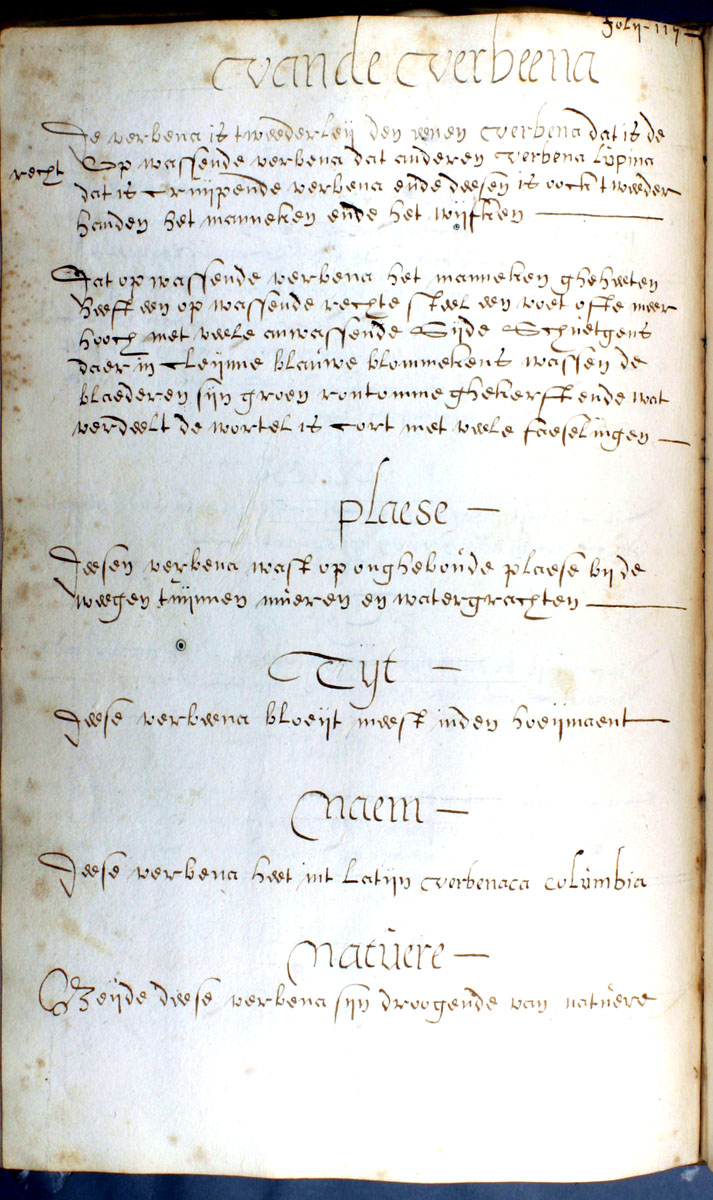 Foly - 117 -
Vande Verbeena
De verbena is tweederleij den eenen Verbena dat is de
recht Op wassende verbena dat anderen Verbena Lupina
dat is Cruijpende verbena ende deesen is oock tweeder
handen het manneken ende het wijfken —
Dat op wassende verbena het manneken gheheeten
heeft een op wassende rechte steel een voet ofte meer
hooch met veele anwassende Sijde Scheutgens
daer in Cleijnne blauwe blommekens wassen de
blaederen sijn groen rontomme ghekerft ende wat
verdeelt de wortel is Cort met veele faeselingen —
plaese —
Deesen verbena wast op onghebou̇de plaese bij de
weegen tuijnnen mueren en watergrachten —
Tijt —
Deese verbeena bloeijt meest inden hoeijmaent —
Naem —
Deese verbena heet int Latijn Verbenaca Columbia
Natuere —
Beijde deese verbena sijn droogende van natuere